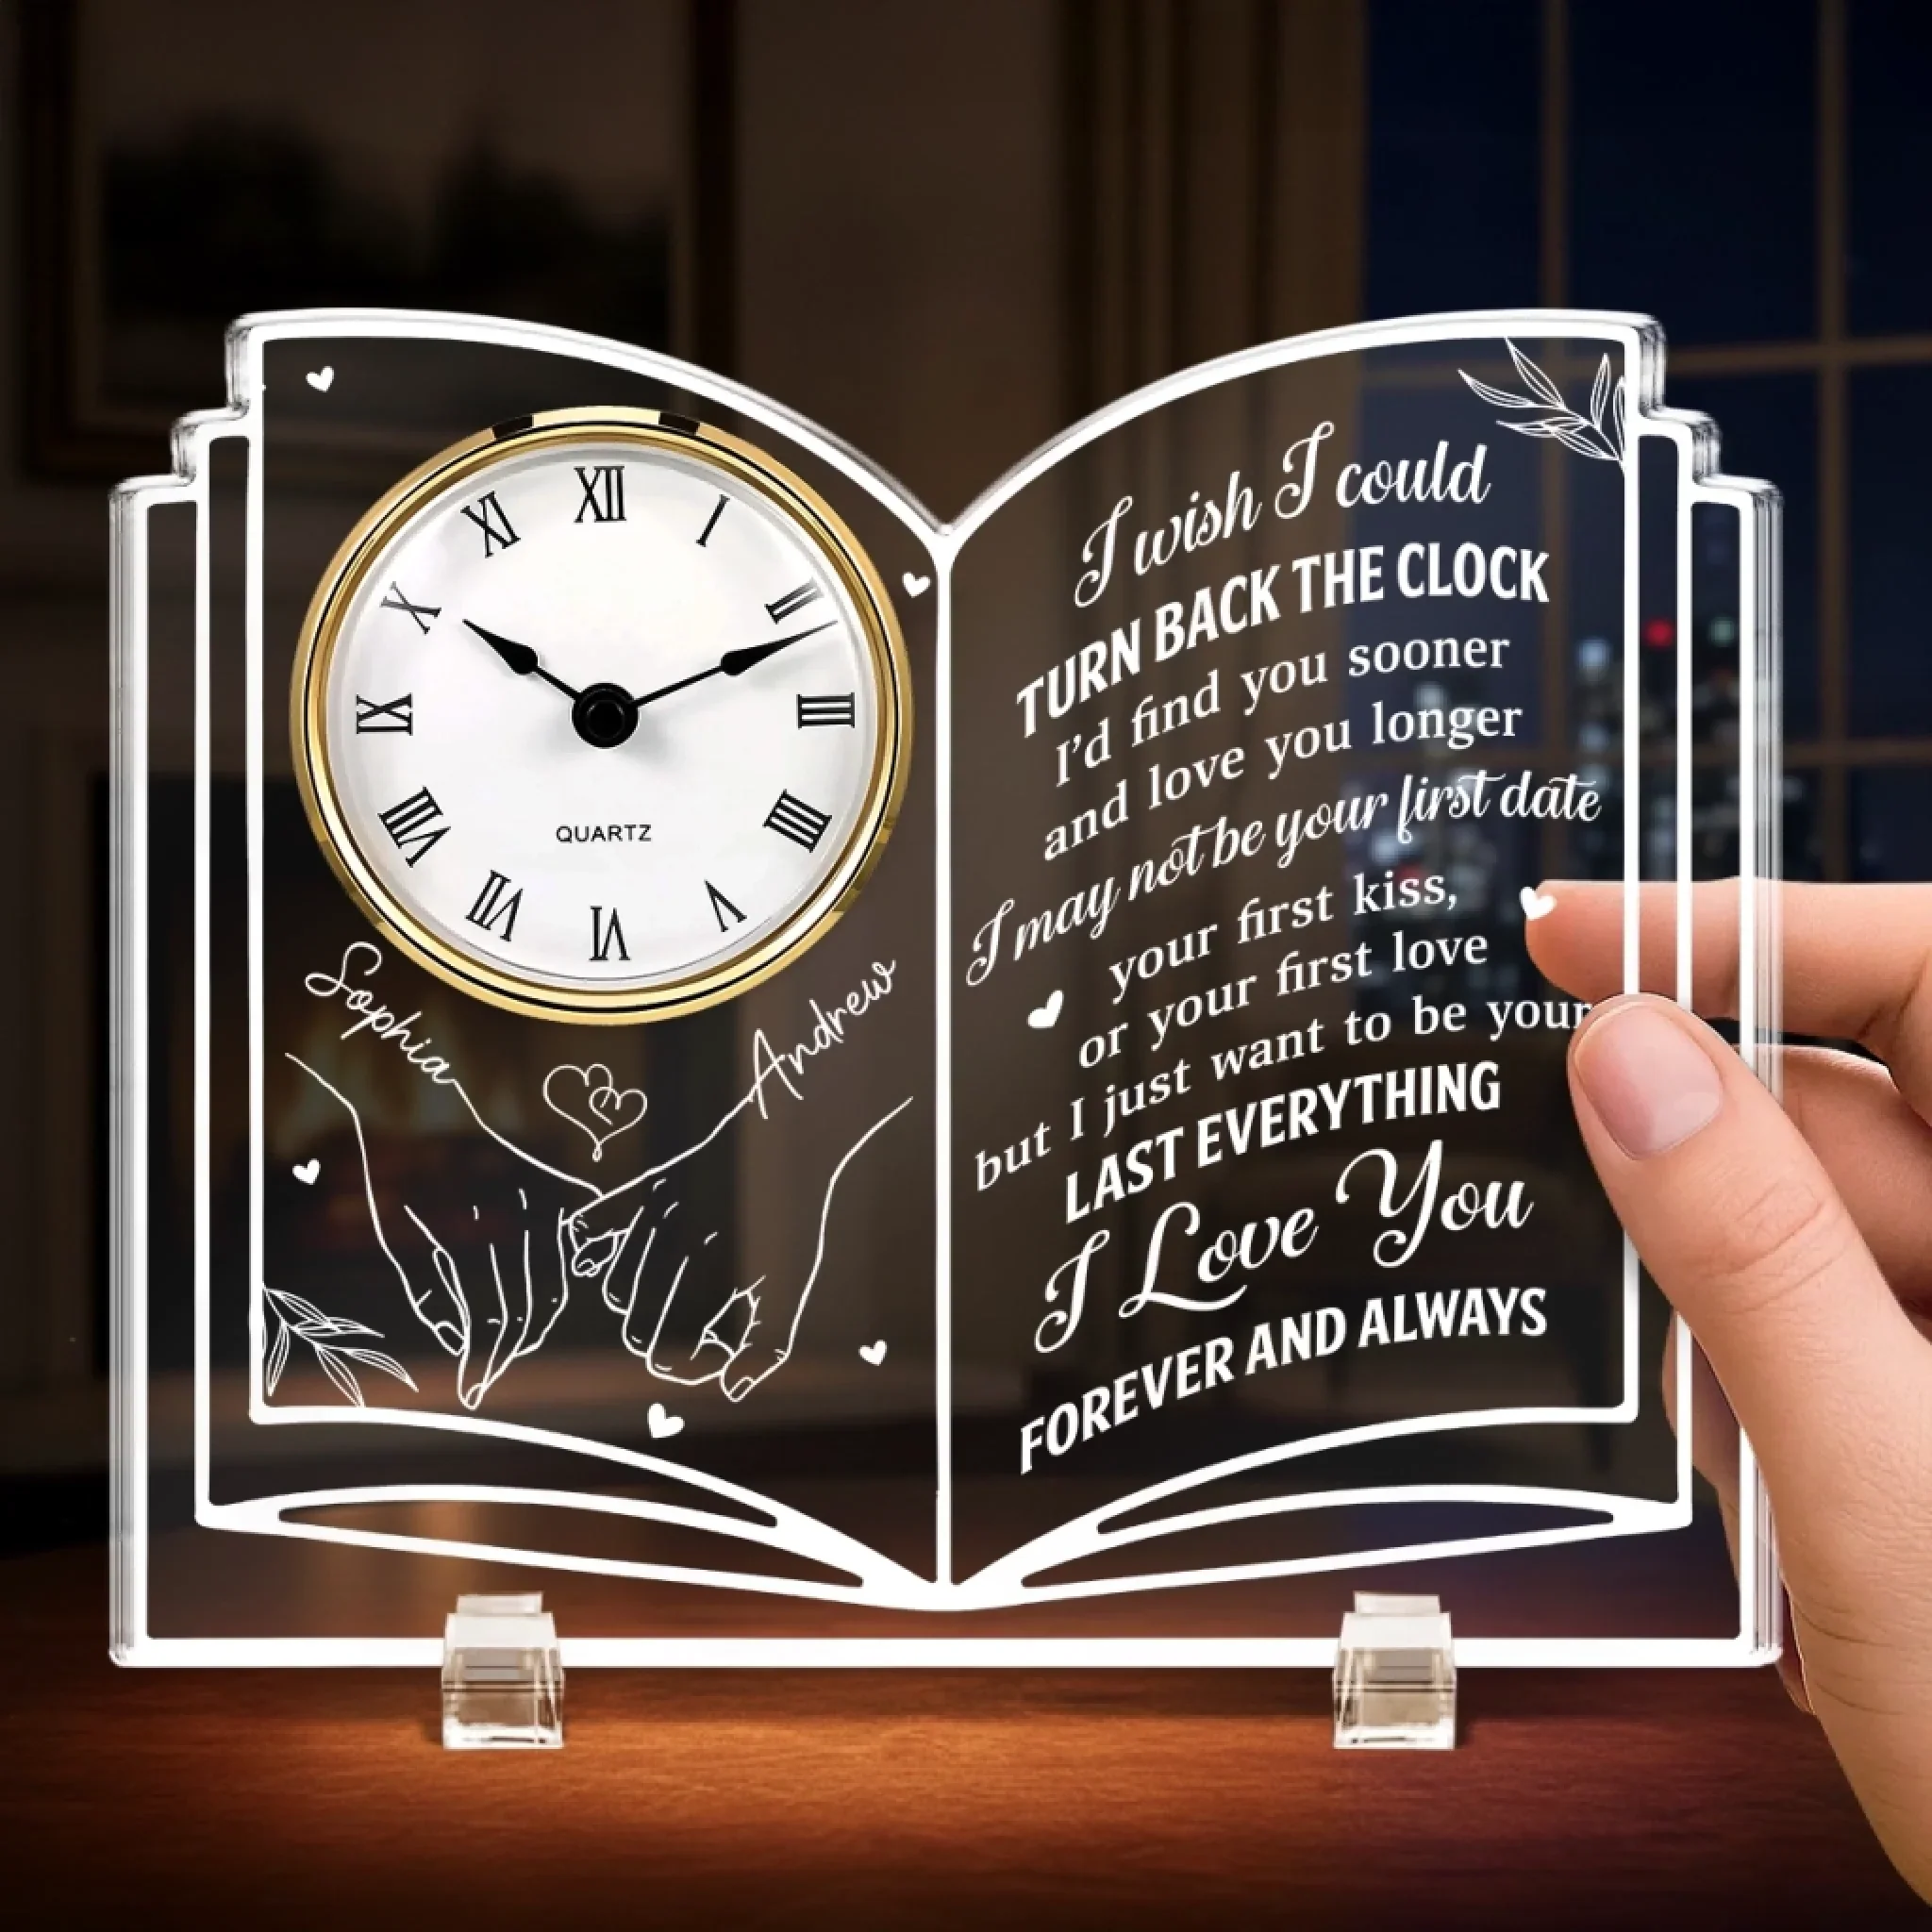 XII
I
II
III
IIII
V
VI
VII
VIII
IX
X
XI
QUARTZ
Sophia
Andrew
I wish I could
TURN BACK THE CLOCK
I'd find you sooner
and love you longer
I may not be your first date
your first kiss,
or your first love
but I just want to be your
LAST EVERYTHING
I Love You
FOREVER AND ALWAYS